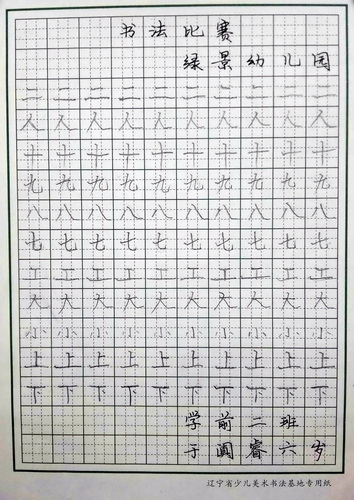 书法比赛
绿景幼儿园
二二二二二二二二二二
人人人人人人人人人人
十十十十十十十十十十
九九九九九九九九九九
八八八八八八八八八八
七七七七七七七七七七
工工工工工工工工工工
大大大大大大大大大大
小小小小小小小小小小
上上上上上上上上上上
下下下下下下下下下下
学前二班
于阗睿六岁
辽宁省少儿美术书法基地专用纸